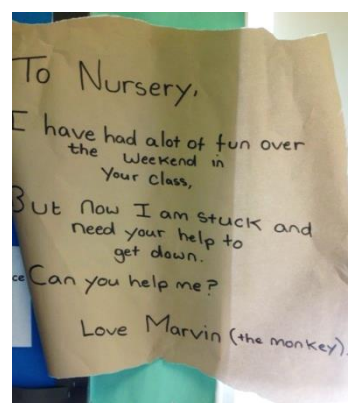 To Nursery,
I have had alot of fun over
the weekend in
Your class,
But now I am stuck and
need your help to
get down.
ce
Can you help me?
Love Marvin (the monkey).